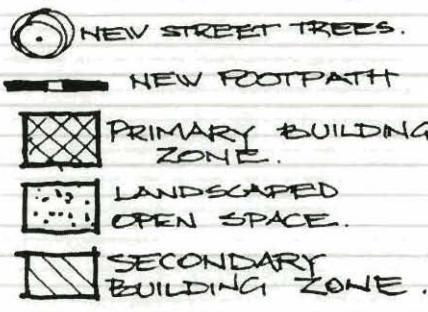 NEW STREET TREES.
NEW FOOTPATH
PRIMARY BUILDING
ZONE.
LANDSCAPED
OPEN SPACE.
SECONDARY
BUILDING ZONE.